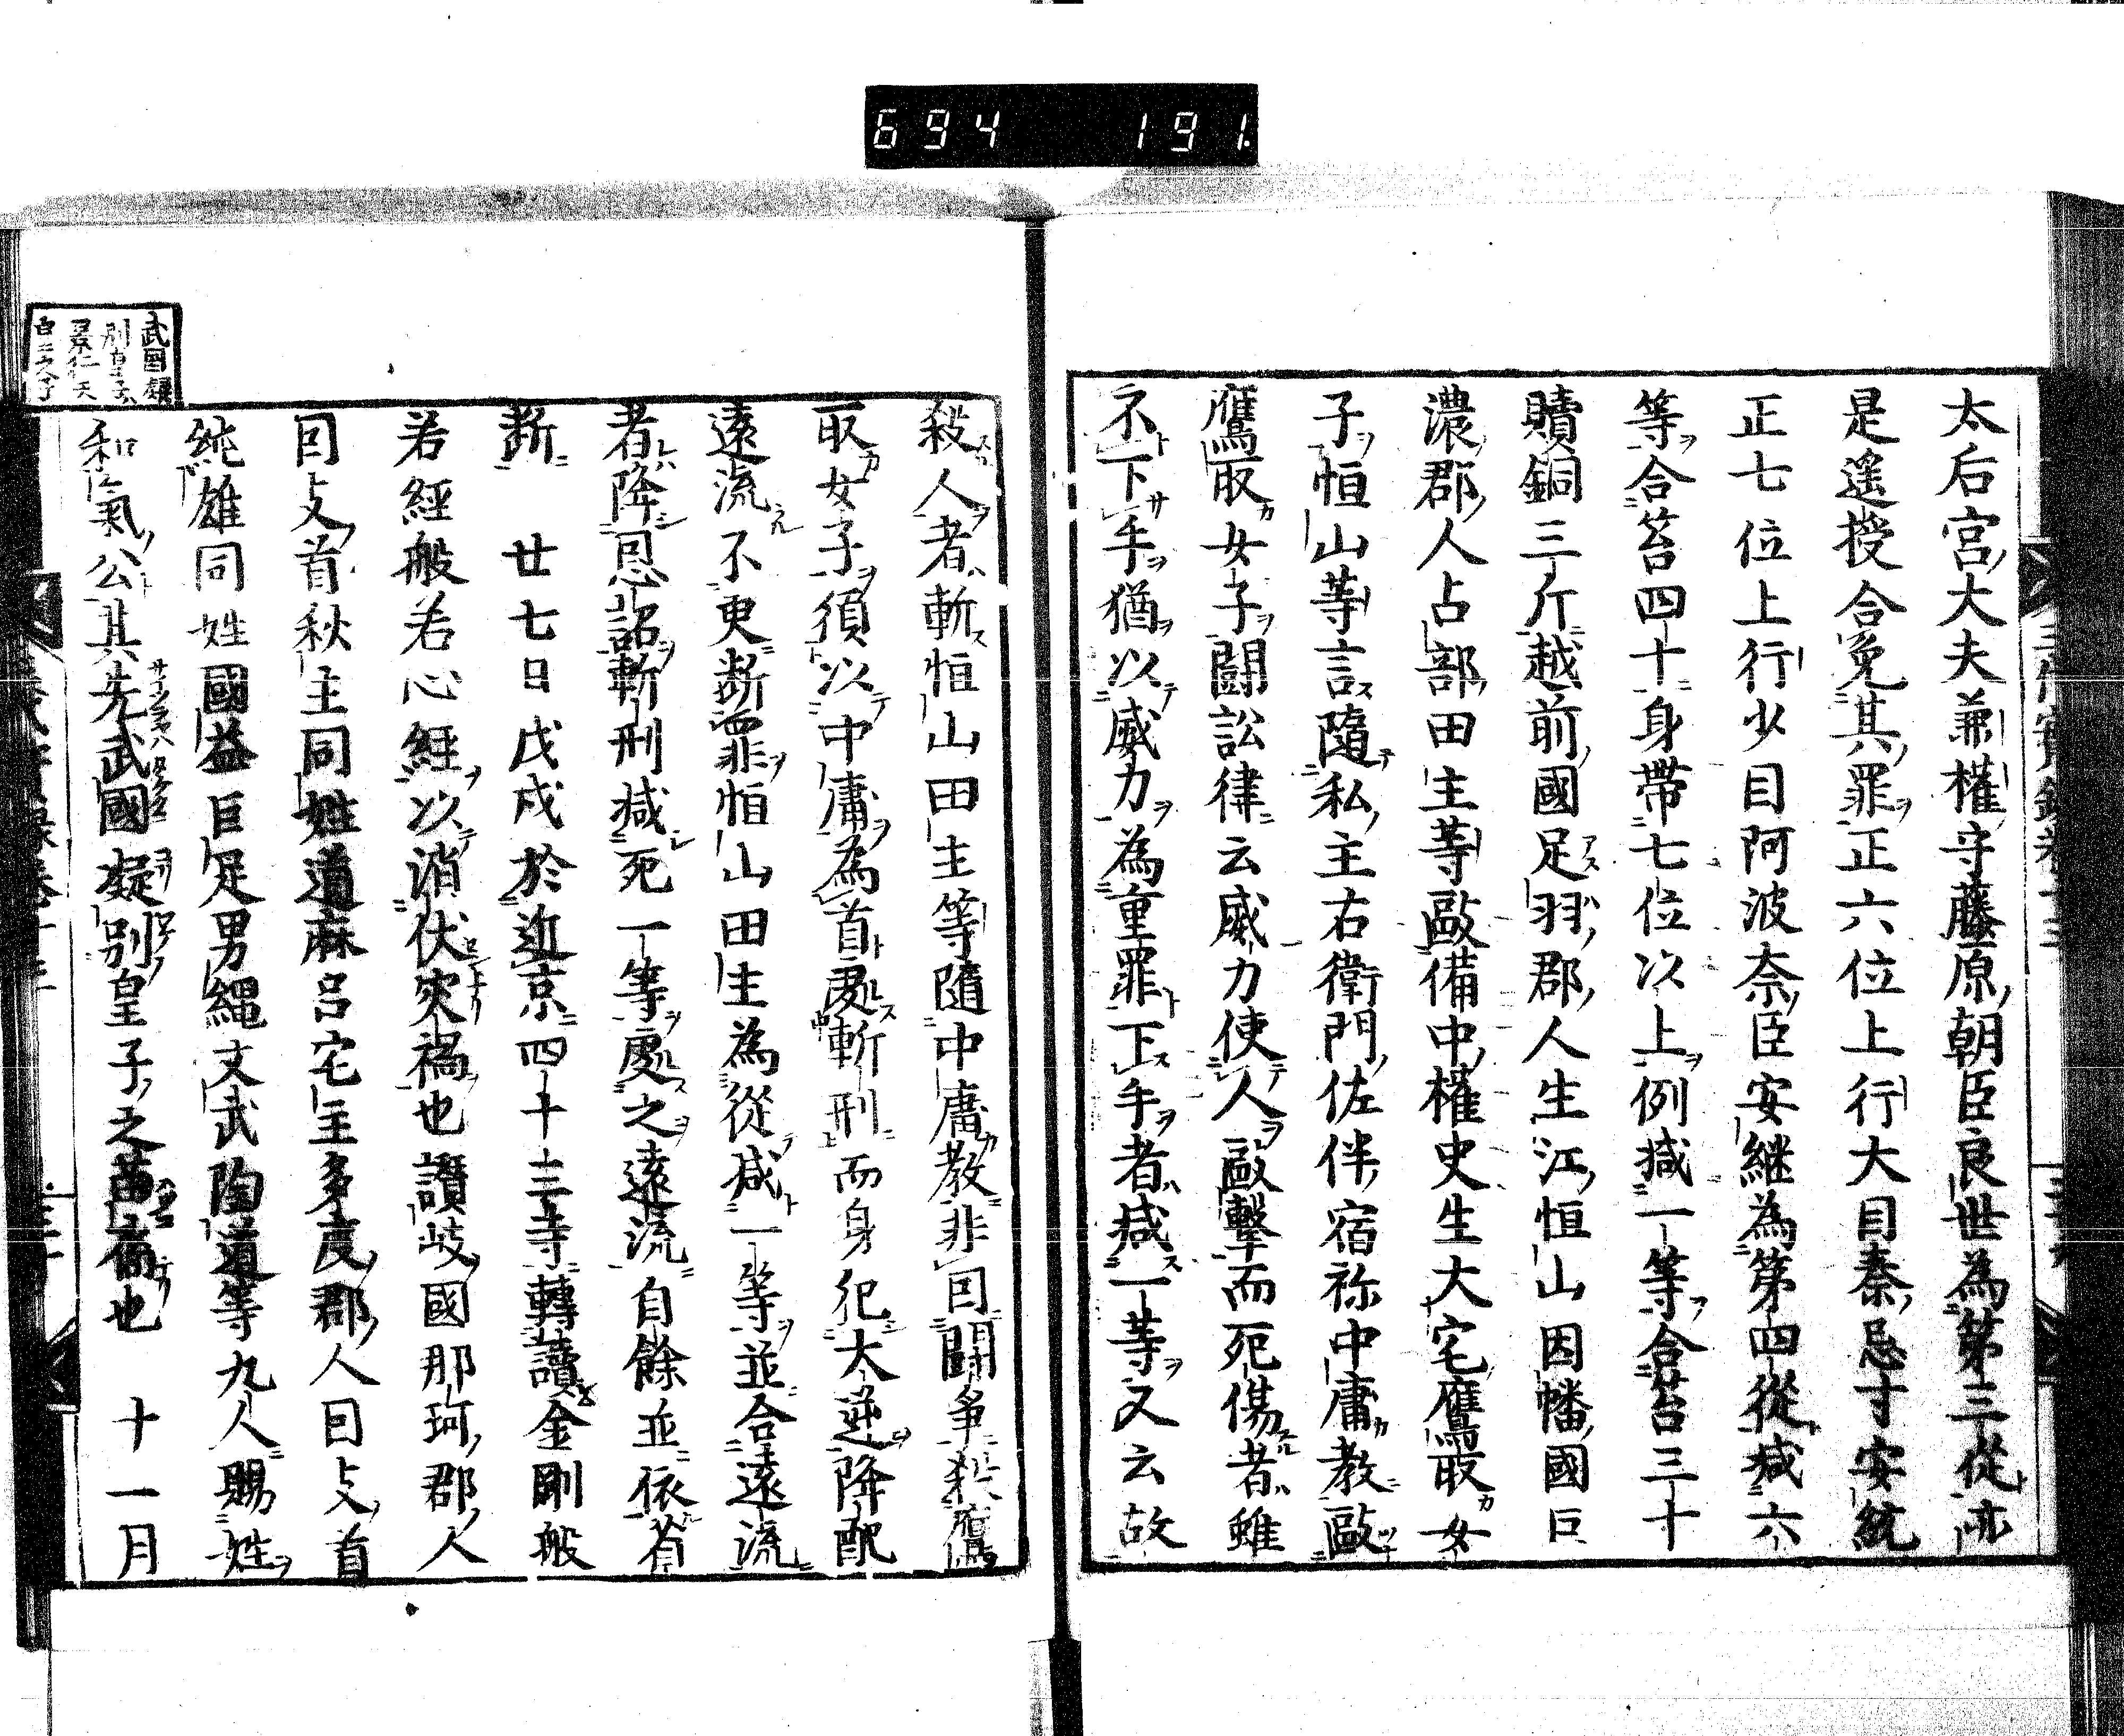 694 191.
太后宮大夫兼權守藤原朝臣良世為第三從亦
是遥授合免其罪正六位上行大目秦忌寸安統
正七位上行少目阿波奈臣安継為第四從减六
等合笞四十身帶七位以上例减一等合笞三十
贖銅三斤越前國足羽郡人生江恒山因幡國巨
濃郡人占部田主等毆備中權史生大宅鷹取女
子恒山等言隨私主右衛門佐伴宿祢中庸教毆
鷹取女子闘訟律云威力使人毆擊而死傷者雖
不下手猶以威力為重罪下手者减一等又云故
殺人者斬恒山田主等隨中庸教非囙闘爭殺鷹
取女子須以中庸為首處斬刑而身犯大逆降配
遠流不更斷罪恒山田主為從减一等並合遠流
者降恩詔斬刑减死一等處之遠流自餘並依省
斷　廿七日戊戌於近京四十三寺轉讀金剛般
若經般若心經以消伏灾禍也讚岐國那珂郡人
囙支首秋主同姓道麻呂宅主多度郡人囙支首
純雄同姓國益巨足男縄文武陶道等九人賜姓
和氣公其先武國凝別皇子之苗裔也　十一月
武國凝
別皇子
景行天
皇之子